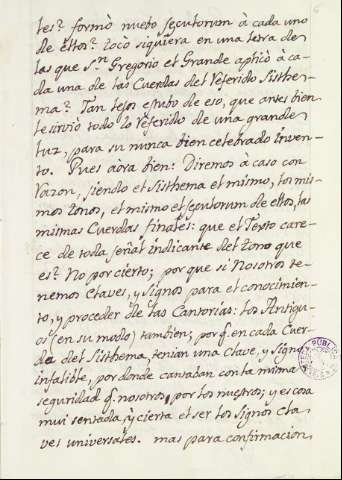 tes? formò nuebo secutorum à cada uno
de ellos? tocò siquiera en una letra de
las que Sn. Gregorio el Grande aplicò à ca-
da una de las Cuerdas del referido Sisthe-
ma? Tan lejos estubo de eso, que antes bien
le sirviò todo lo referido de una grande
luz, para su nunca bien celebrado inven-
to. Pues aòra bien: Diremos à caso con
razon, siendo el Sisthema el mismo, los mis-
mos tonos, el mismo el sequtorum de ellos, las
mismas Cuerdas finales: que el Texto care-
ce de toda señal indicante del tono que
es? No por cierto; por que si Nosotros te-
nemos Claves, y Signos para el conocimien-
to, y proceder de las Cantorìas: los Antigu-
os (en su modo) tambien; por q. en cada Cuer-
da del Sisthema, tenian una Clave, y Signo
infalible, por donde cantaban con la misma
seguridad q. nosotros, por los nuestros; y es cosa
mui sentada, y cierta el ser los Signos Cla-
ves universales. mas para confirmacion